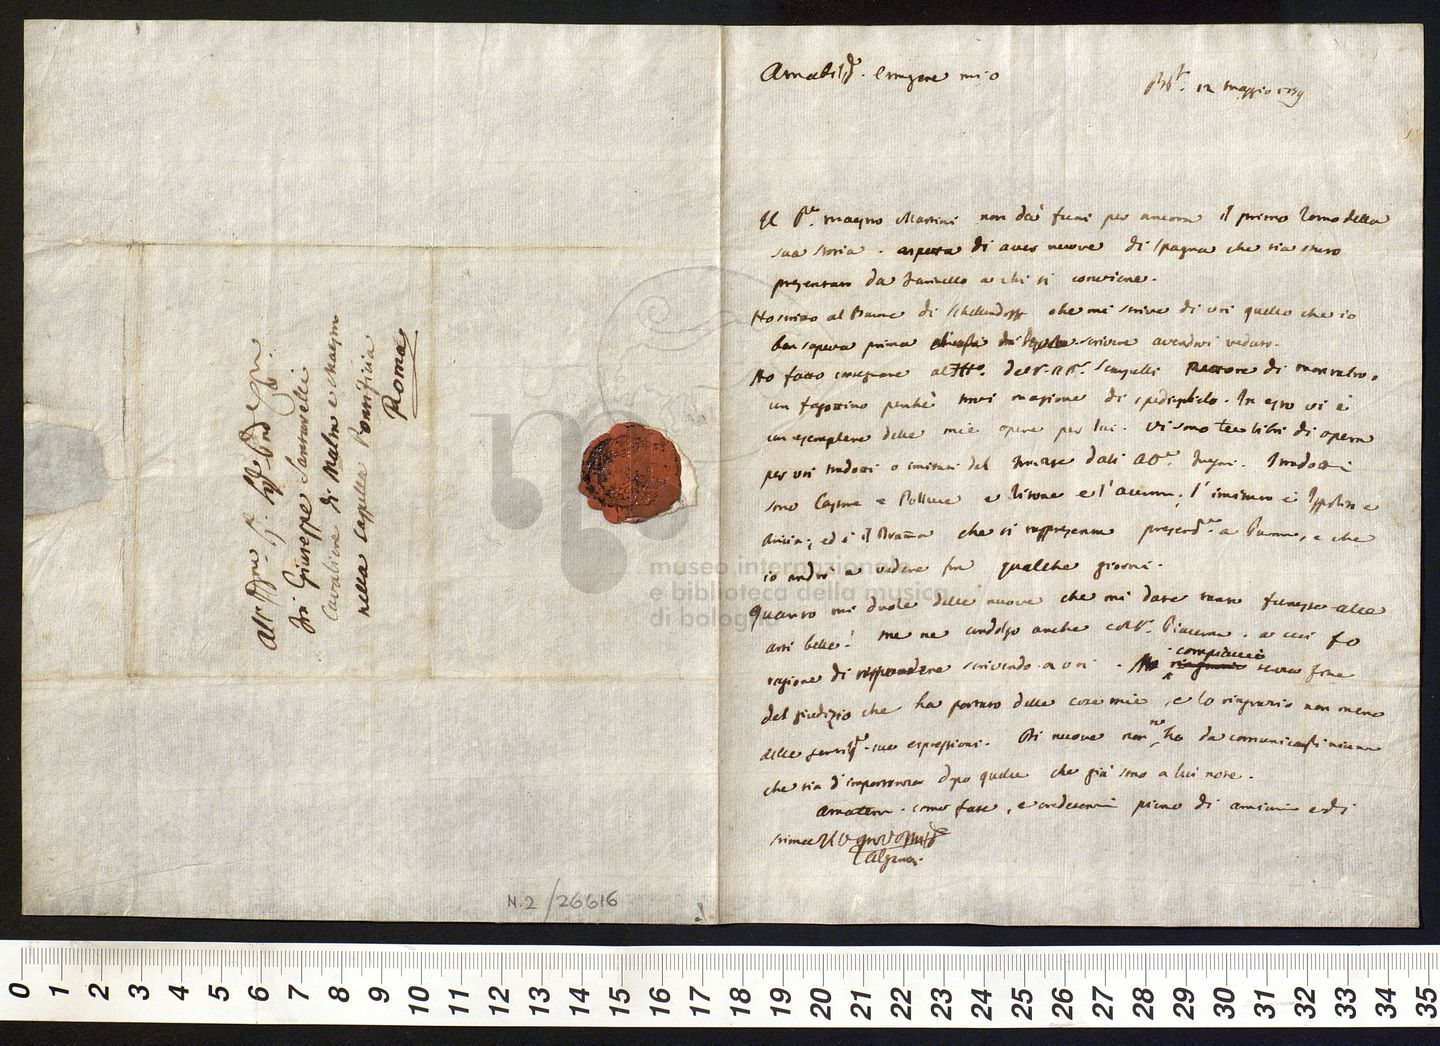 All' 
Fr: Giuseppe Santarelli
Cavaliere di Malta e Maestro
nella Cappella Pontificia
Roma
N.2/26616
mio
12 Maggio 1759
Il P.re Maestro Martini non dà fuori per ancora il primo Tomo della
sua storia. aspetta di aver nuove di Spagna che sia stato
presentato da Farinello a chi si conviene.
Ho scritto al Barone di che mi scrive di voi quello che io
ben sapeva prima scrivere avendovi veduto.
Ho fatto consegnare al Rettore di
un fagottino perchè trovi occasione di spedirvelo. In esso vi è
un esemplare delle mie opere per lui. Vi sono tre libri di opera
per voi tradotti o imitati dal francese dall' Ab.e Frugoni. Tradotti
sono Castore e Polluce e Titone e l'Aurora; l'imitato è Ippolito e
Aricia; ed è il Dramma che si rappresenta a Parma, e che
io andrò a vedere fra qualche giorni.
Quanto mi duole delle nuove che mi date tanto funeste alle
arti belle! me ne condolgo anche col a cui fo
ragione di rispondere scrivendo a voi. compiaccio senza fine
del giudizio che ha portato delle cose mie, e lo ringrazio non meno
delle sue espressioni. Di nuove non ne ho da comunicargli niuna
che sia d'importanza dopo quelle che già sono a lui note.
Amatemi come fate, e credetemi pieno di amicizia e di
stima Il vostro
Algarotti
museo internazionale
e biblioteca della musica
di bologna
0 1 2 3 4 5 6 7 8 9 10 11 12 13 14 15 16 17 18 19 20 21 22 23 24 25 26 27 28 29 30 31 32 33 34 35